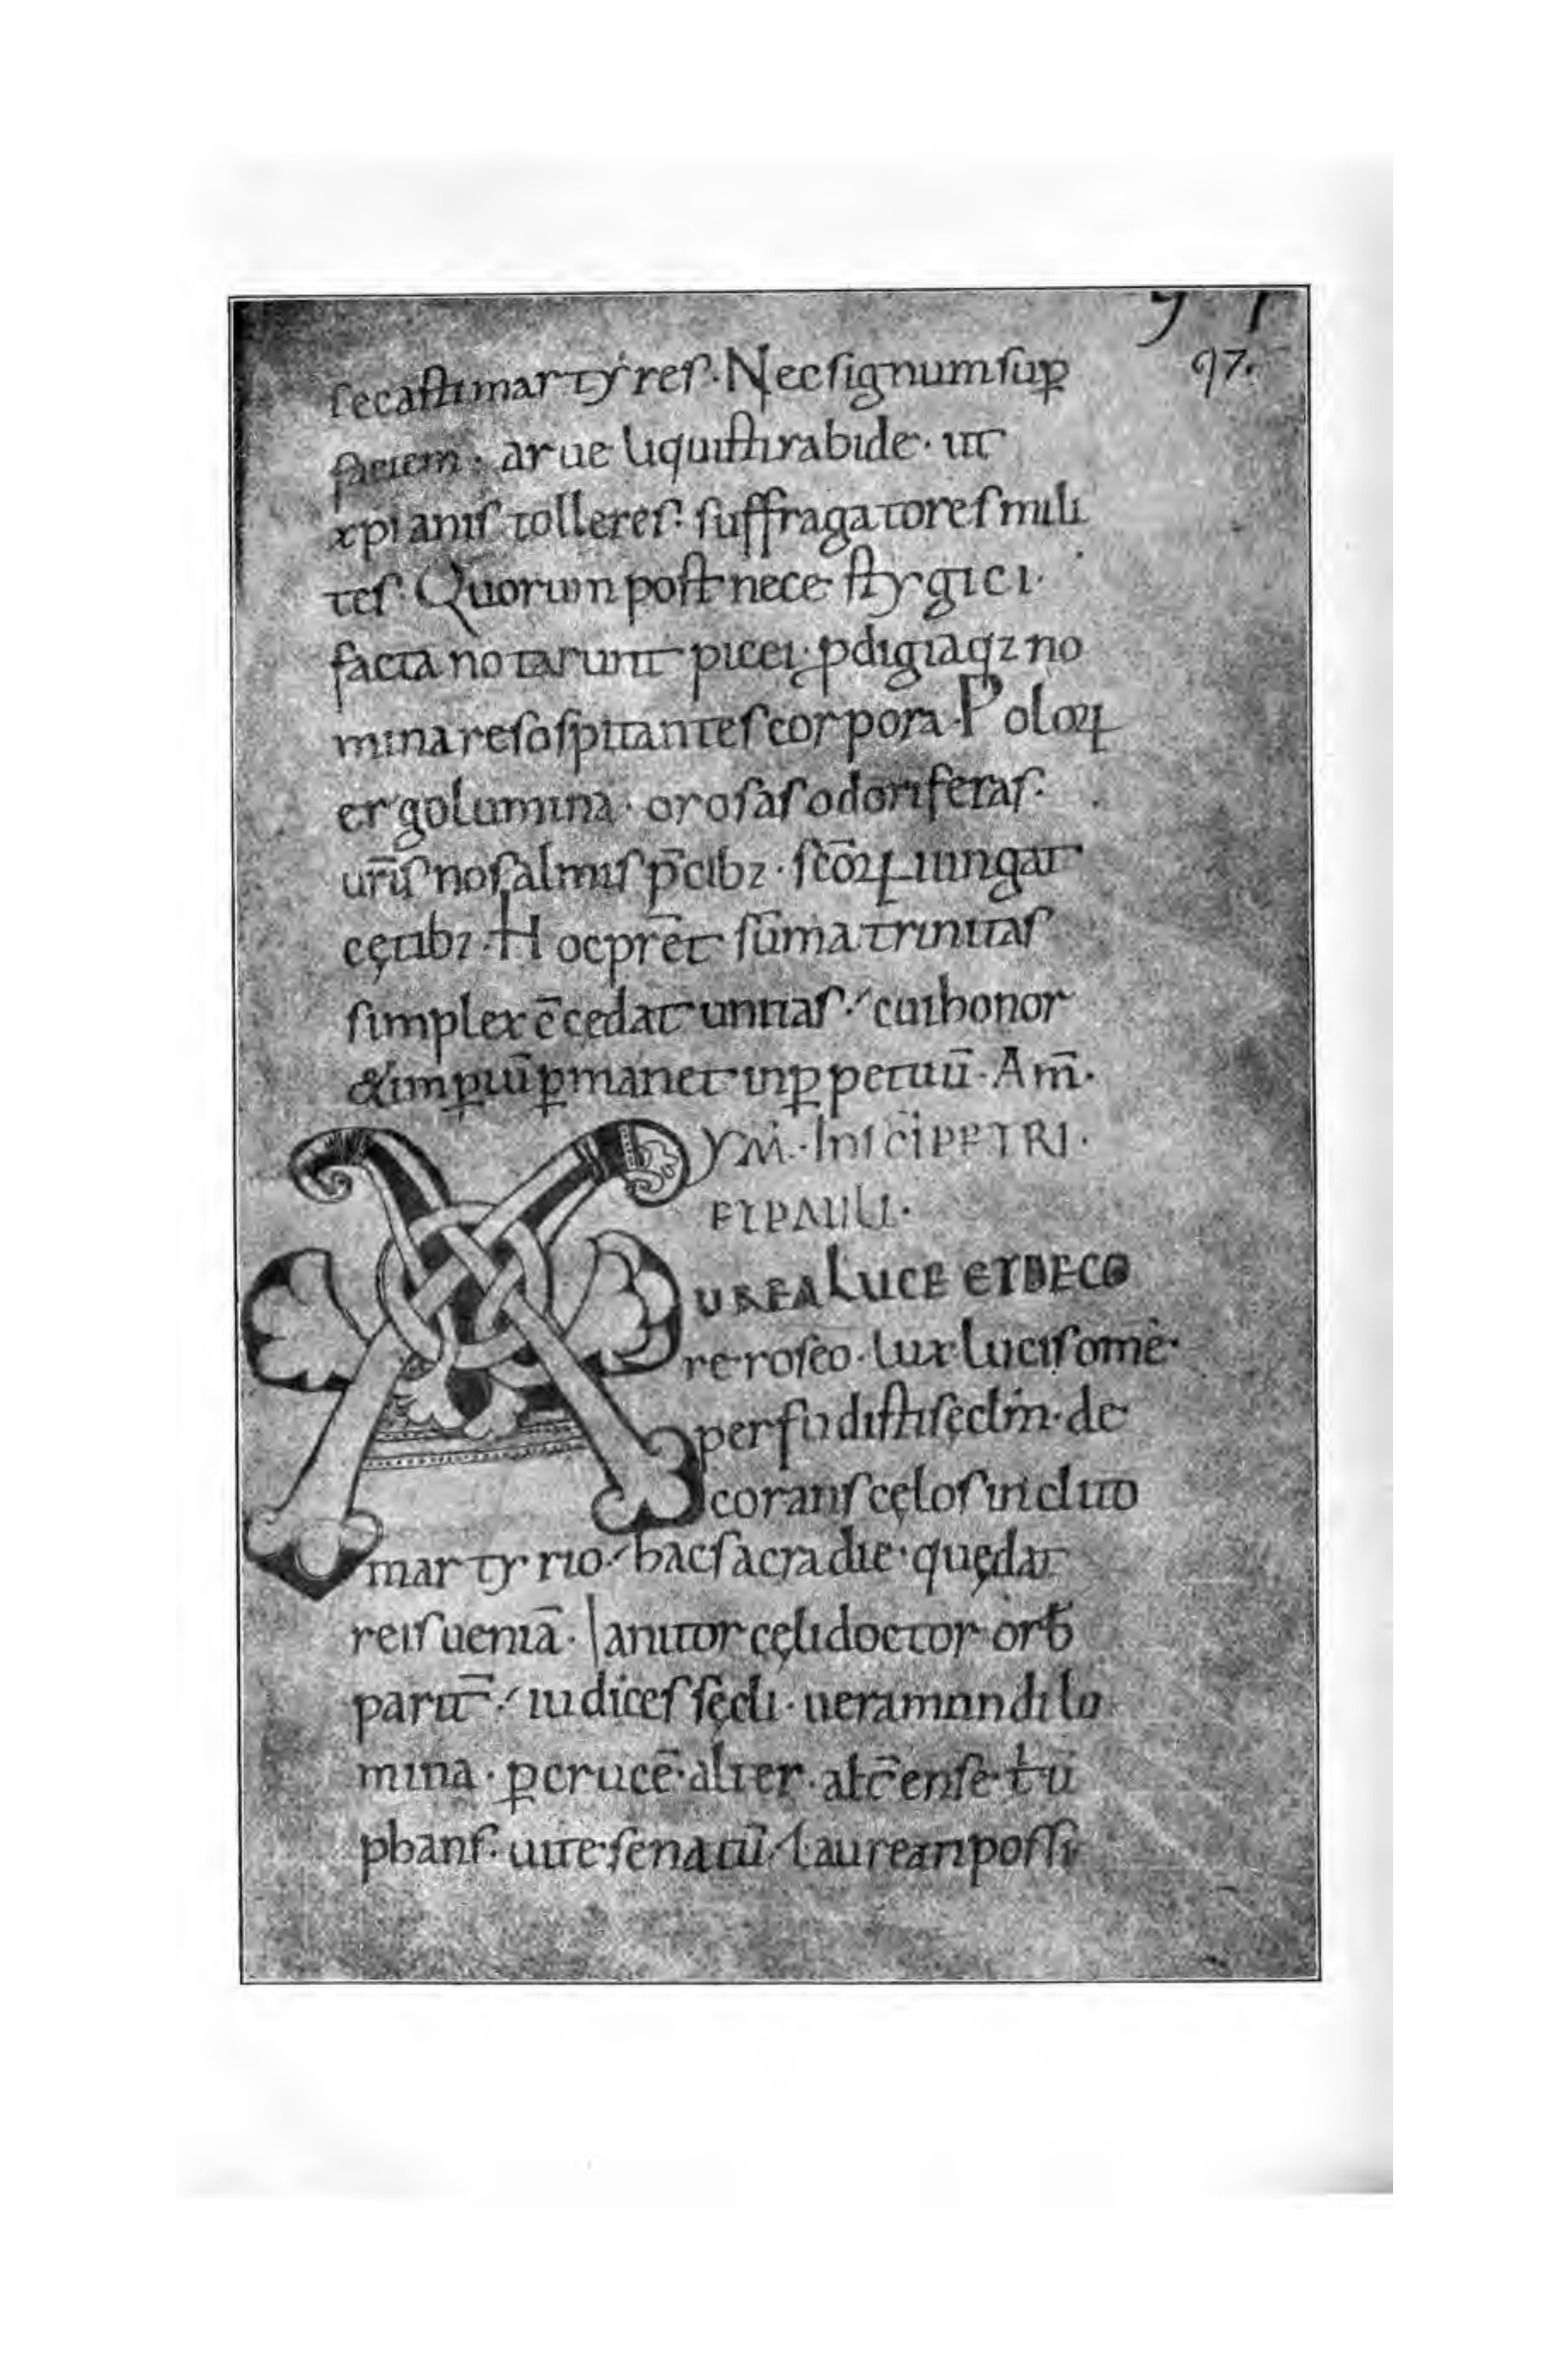 97.
secasti martyres. Nec signum sup
faciem. arue liquisti rabide. ut
xpianis tolleres. suffragatores mili
tes. Quorum post nece stygici.
facta notarunt picei. pdigiaqz no
mina resospitantes corpora. Poloꝝ
ergo lumina. o rosas odoriferas.
ur̄is nos almis p̄cibz. sc̄oꝝ iungat
cętibz. Hoc prēēt sūma trinitas
simplex c̄cedat unitas. cui honor
& impiū pmanet inp petuū. Am̄.
YM. In sc̄i PETRI.
ET PAULI.
AUREA LUCE ET DECO
re roseo. lux lucis omē.
perfudisti sęclm̄. de
corans cęlos inclito
martyrio. hac sacra die. quę dat
reis ueniā. Ianitor cęli doctor orb̄
parit̄. iudices sęcli. uera mundi lu
mina. p crucē. alter. alt̄ ense t̄u
phans. uite senatū. laurean possi